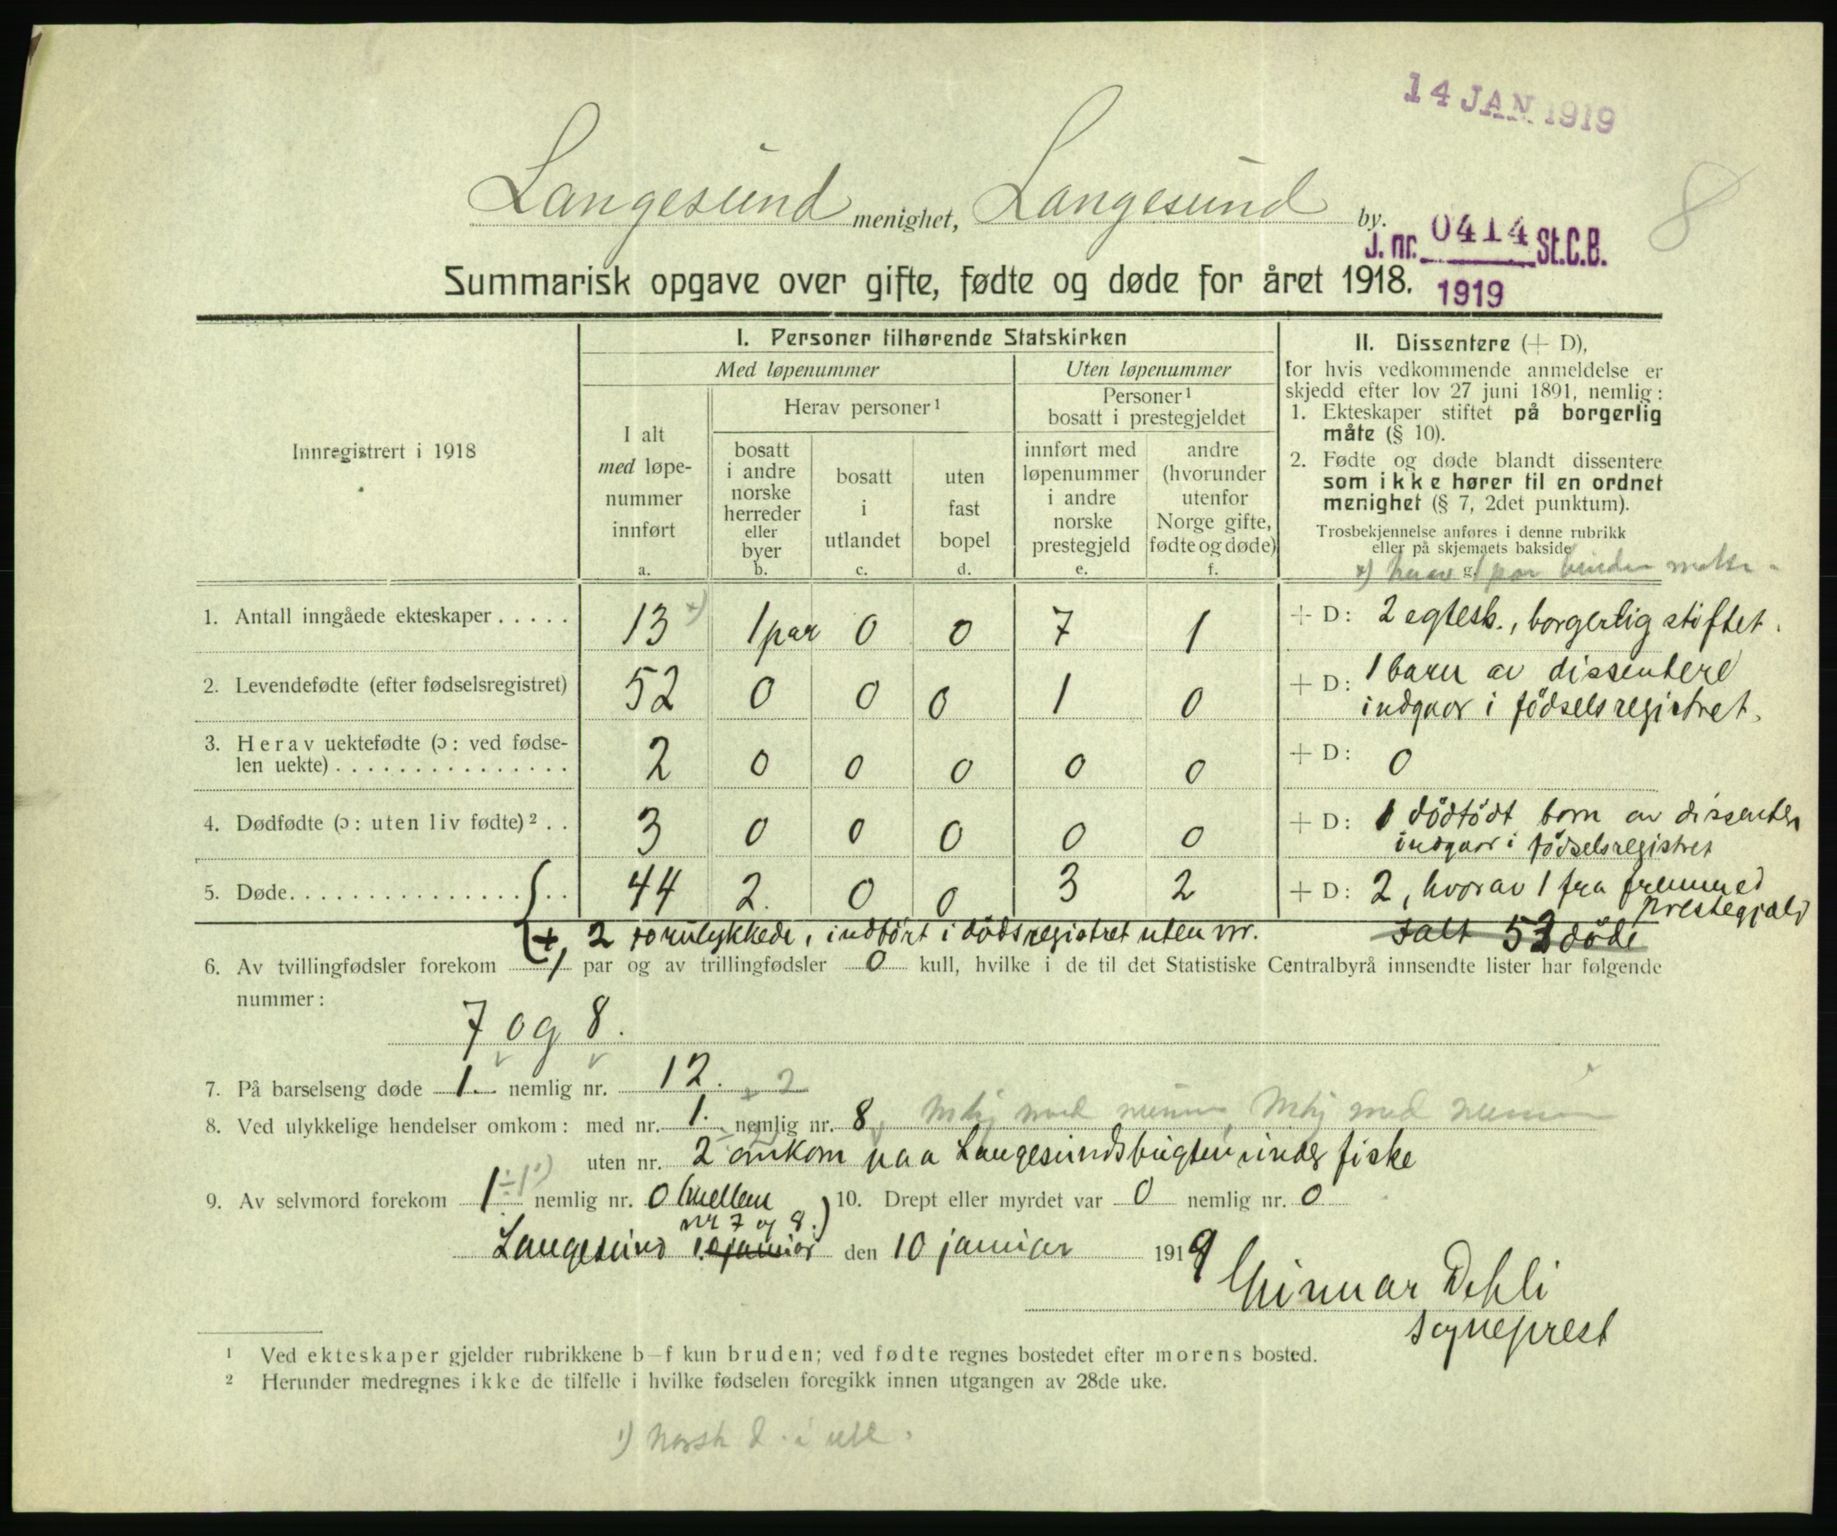 14 JAN 1919
8
Langesund menighet, Langesund by.
J. nr. 0414 St.C.B.
1919
Summarisk opgave over gifte, fødte og døde for året 1918.
Innregistrert i 1918
I. Personer tilhørende Statskirken
Med løpenummer
Uten løpenummer
Herav personer ¹
Personer ¹
bosatt i prestegjeldet
I alt
med løpe-
nummer
innført
a.
bosatt
i andre
norske
herreder
eller
byer
b.
bosatt
i
utlandet
c.
uten
fast
bopel
d.
innført med
løpenummer
i andre
norske
prestegjeld
e.
andre
(hvorunder
utenfor
Norge gifte,
fødte og døde)
f.
II. Dissentere (+ D),
for hvis vedkommende anmeldelse er
skjedd efter lov 27 juni 1891, nemlig:
1. Ekteskaper stiftet på borgerlig
måte (§ 10).
2. Fødte og døde blandt dissentere
som ikke hører til en ordnet
menighet (§ 7, 2det punktum).
Trosbekjennelse anføres i denne rubrikk
eller på skjemaets bakside
g.
×) herav 1 par
1. Antall inngåede ekteskaper . . . . . 13 ×) 1 par 0 0 7 1 + D: 2 egtesk., borgerlig stiftet.
2. Levendefødte (efter fødselsregistret) 52 0 0 0 1 0 + D: 1 barn av dissentere
indgaar i födselsregistret.
3. Herav uektefødte (ɔ: ved fødse-
len uekte) . . . . . . . . . . . . . . . 2 0 0 0 0 0 + D: 0
4. Dødfødte (ɔ: uten liv fødte) ² . . 3 0 0 0 0 0 + D: 1 dödfödt barn av dissenter
indgaar i födselsregistret
5. Døde. . . . . . . . . . . . . . . . . . . . 44 2. 0 0 3 2 + D: 2, hvorav 1 fra fremmed
prestegjald
+ 2 forulykkede, indfört i dödsregistret uten nr.
Ialt 53 döde
6. Av tvillingfødsler forekom 1 par og av trillingfødsler 0 kull, hvilke i de til det Statistiske Centralbyrå innsendte lister har følgende
nummer:
7 og 8.
7. På barselseng døde 1. nemlig nr. 12.
+ 2
8. Ved ulykkelige hendelser omkom: med nr. 1. nemlig nr. 8,
uten nr. 2 omkom paa Langesundsbugten under fiske
9. Av selvmord forekom 1 ÷1 ¹) nemlig nr. 0 (mellem
nr 7 og 8.)
10. Drept eller myrdet var 0 nemlig nr. 0
Langesund 10 januar den 10 januar 1919
Gunnar Dehli
sogneprest
¹ Ved ekteskaper gjelder rubrikkene b—f kun bruden; ved fødte regnes bostedet efter morens bosted.
² Herunder medregnes ikke de tilfelle i hvilke fødselen foregikk innen utgangen av 28de uke.
¹) Norsk d. i utl.